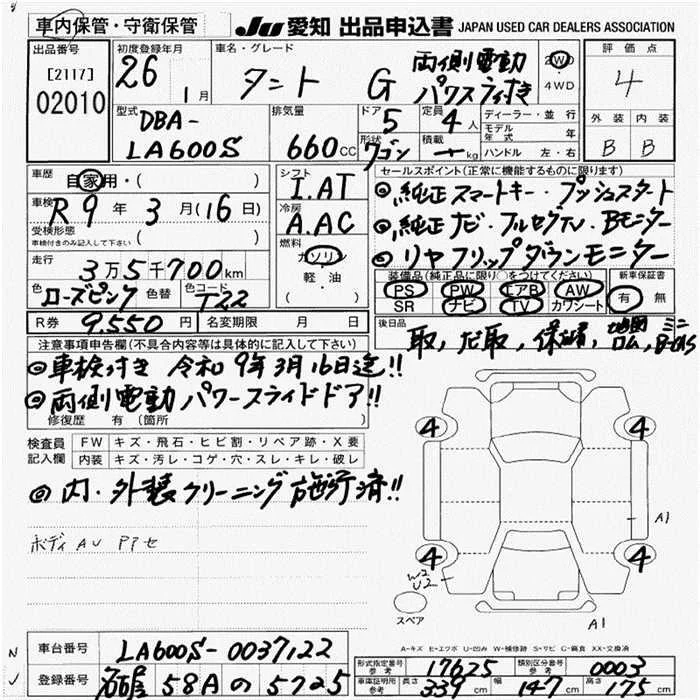 車内保管・守衛保管
JU 愛知 出品申込書 JAPAN USED CAR DEALERS ASSOCIATION
出品番号 初度登録年月 車名・グレード 評価点
[2117] 26 1月 タント G 両側電動 パワスラ付き 2WD 4WD 4
02010
型式 DBA-LA600S 排気量 660cc ドア 5 定員 4人 ディーラー・並行 外装 内装
形状 ワゴン 積載 kg モデル年式 年 B B
ハンドル 左・右
車歴 自家用・( ) シフト I.AT セールスポイント(正常に機能するものに限ります)
車検 R9年 3月(16日) 冷房 A.AC ◎純正スマートキー・プッシュスタート
受検形態 ( ) ◎純正ナビ・フルセグTV・Bモニター
車検付きのみ記入して下さい 燃料 ガソリン ◎リヤフリップダウンモニター
走行 3万5千700km 軽・油 装備品(純正品に限り○をつけてください) 新車保証書
( ) PS PW エアB AW 有 無
色 ローズピンク 色替 色コード T22 SR ナビ TV カワシート
R券 9,550円 名変期限 月 日 後日品 取,ナビ取,保,地図ROM,ミニB-CAS
注意事項申告欄(不具合内容等は具体的に記入して下さい)
◎車検付き 令和9年3月16日迄!!
◎両側電動パワースライドドア!!
修復歴 有(箇所 )
検査員記入欄 FW キズ・飛石・ヒビ割・リペア跡・X要
内装 キズ・汚レ・コゲ・穴・スレ・キレ・破レ
4 4
◎内・外装クリーニング施行済!!
A1
ボディAU アアセ
4 4
W2
U2
スペア
A1
A-キズ E-エクボ U-凹み W-補修跡 S-サビ C-腐食 XX-交換済
N 車台番号 LA600S-0037122
型式指定番号 参考 17625 類別区分番号 参考 0003
J 登録番号 名古屋 58A の 5725
車体証明用 参考 長さ 339cm 幅 147cm 高さ 175cm